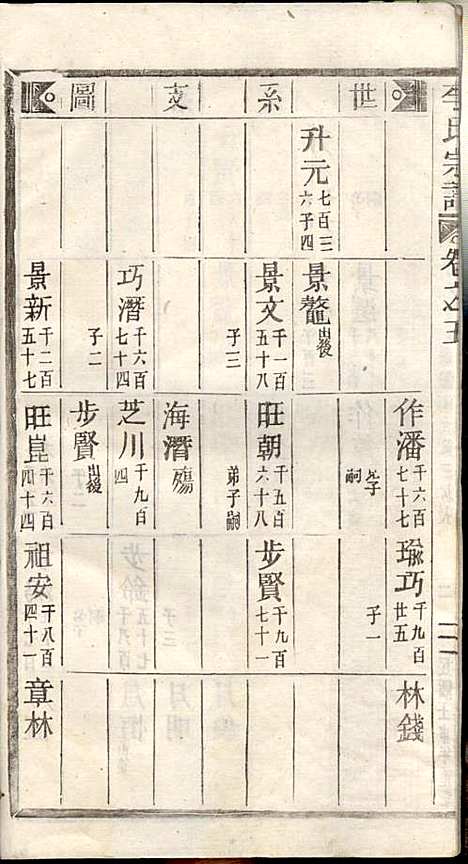 李氏宗譜
卷之五
二
世系支圖
作潘 千六百七十七
兄子嗣
瑜巧 千九百廿五
子一
林錢
升元 七百三六 子四
景鰲 出後
景文 千一百五十八
子三
旺朝 千五百六十八
弟子嗣
步賢 千九百七十一
海潛 殤
巧潛 千六百七十四
子二
芝川 千九百四
步賢 出後
景新 千二百五十七
旺崑 千六百四十四
祖安 千八百四十一
章林